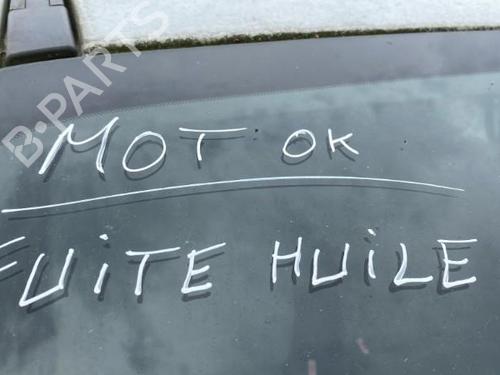 B-PARTS
MOT OK
FUITE HUILE